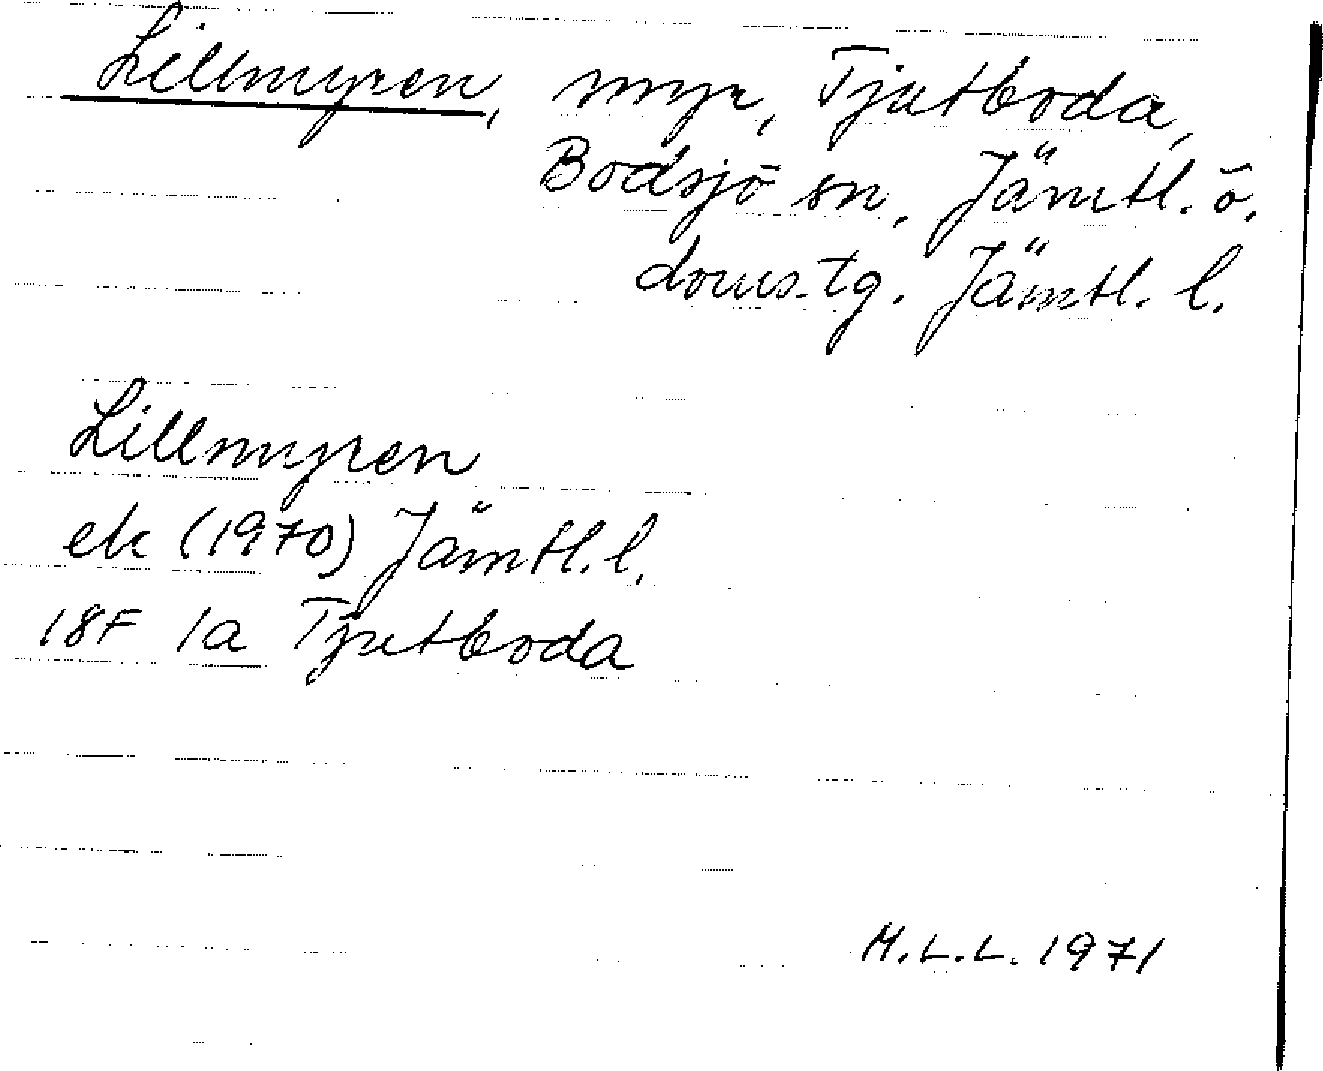 Lillmyren, myr, Tjutboda,
Bodsjö sn, Jämtl. ö.
doms.tg. Jämtl. l.
Lillmyren
ek (1970) Jämtl. l.
18F 1a Tjutboda
M.L.L. 1971